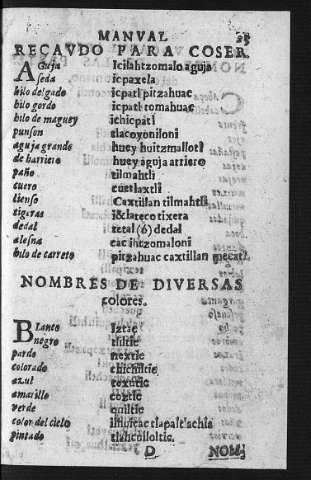 MANUAL 25
RECAVDO PARA COSER.
AGuja Icilahtzomalo aguja
seda icpaxela
hilo delgado icpatl pitzahuac
hilo gordo icpatl tomahuac
hilo de maguey ichicpatl
punson tlacoyoniloni
aguja grande huey huitzmallotl
de harriero huey aguja arriero
paño tilmahtli
cuero cuetlaxtli
lienso Caxtillan tilmahtli
tigeras tixera
dedal (ó) dedal
alesna
hilo de carreto pitzahuac caxtillan mecatl
NOMBRES DE DIVERSAS
colores.
BLanco Iztac
negro tliltic
pardo nextic
colorado chichiltic
azul texutic
amarillo coztic
verde quiltic
color del cielo ilhuicac
pintado tlahcuilloltic.
D NOM-